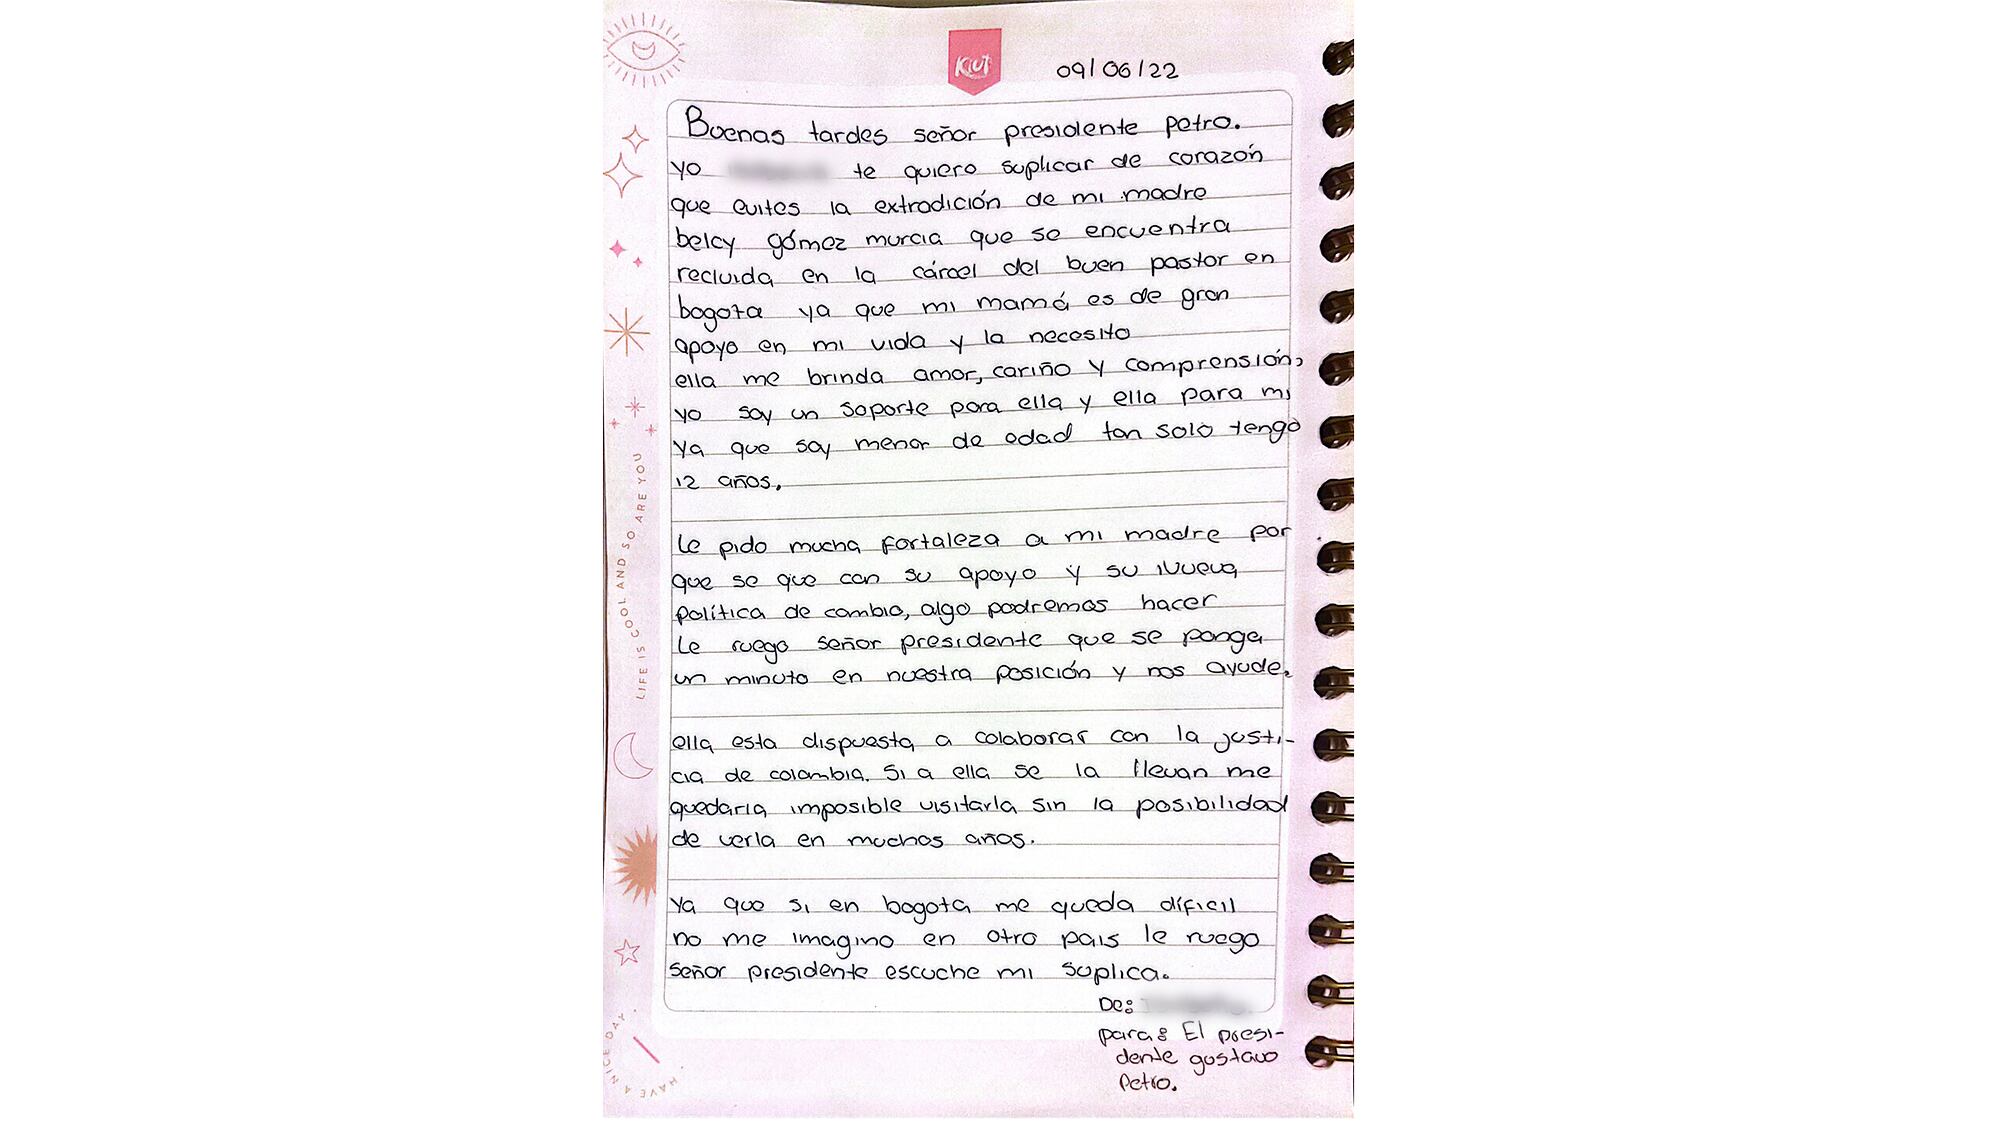 Kiut
09/06/22
Buenas tardes señor presidente petro.
yo te quiero suplicar de corazón
que evites la extradición de mi madre
belcy gómez murcia que se encuentra
recluida en la cárcel del buen pastor en
bogota ya que mi mamá es de gran
apoyo en mi vida y la necesito
ella me brinda amor, cariño y comprensión,
yo soy un soporte para ella y ella para mi
ya que soy menor de edad tan solo tengo
12 años.
Le pido mucha fortaleza a mi madre por
que se que con su apoyo y su nueva
política de cambio, algo podremos hacer
Le ruego señor presidente que se ponga
un minuto en nuestra posición y nos ayude.
ella esta dispuesta a colaborar con la justi-
cia de colombia. Si a ella se la llevan me
quedaria imposible visitarla sin la posibilidad
de verla en muchos años.
Ya que si en bogota me queda díficil
no me imagino en otro pais le ruego
señor presidente escuche mi suplica.
De:
para: El presi-
dente gustavo
Petro.
LIFE IS COOL AND SO ARE YOU
HAVE A NICE DAY.